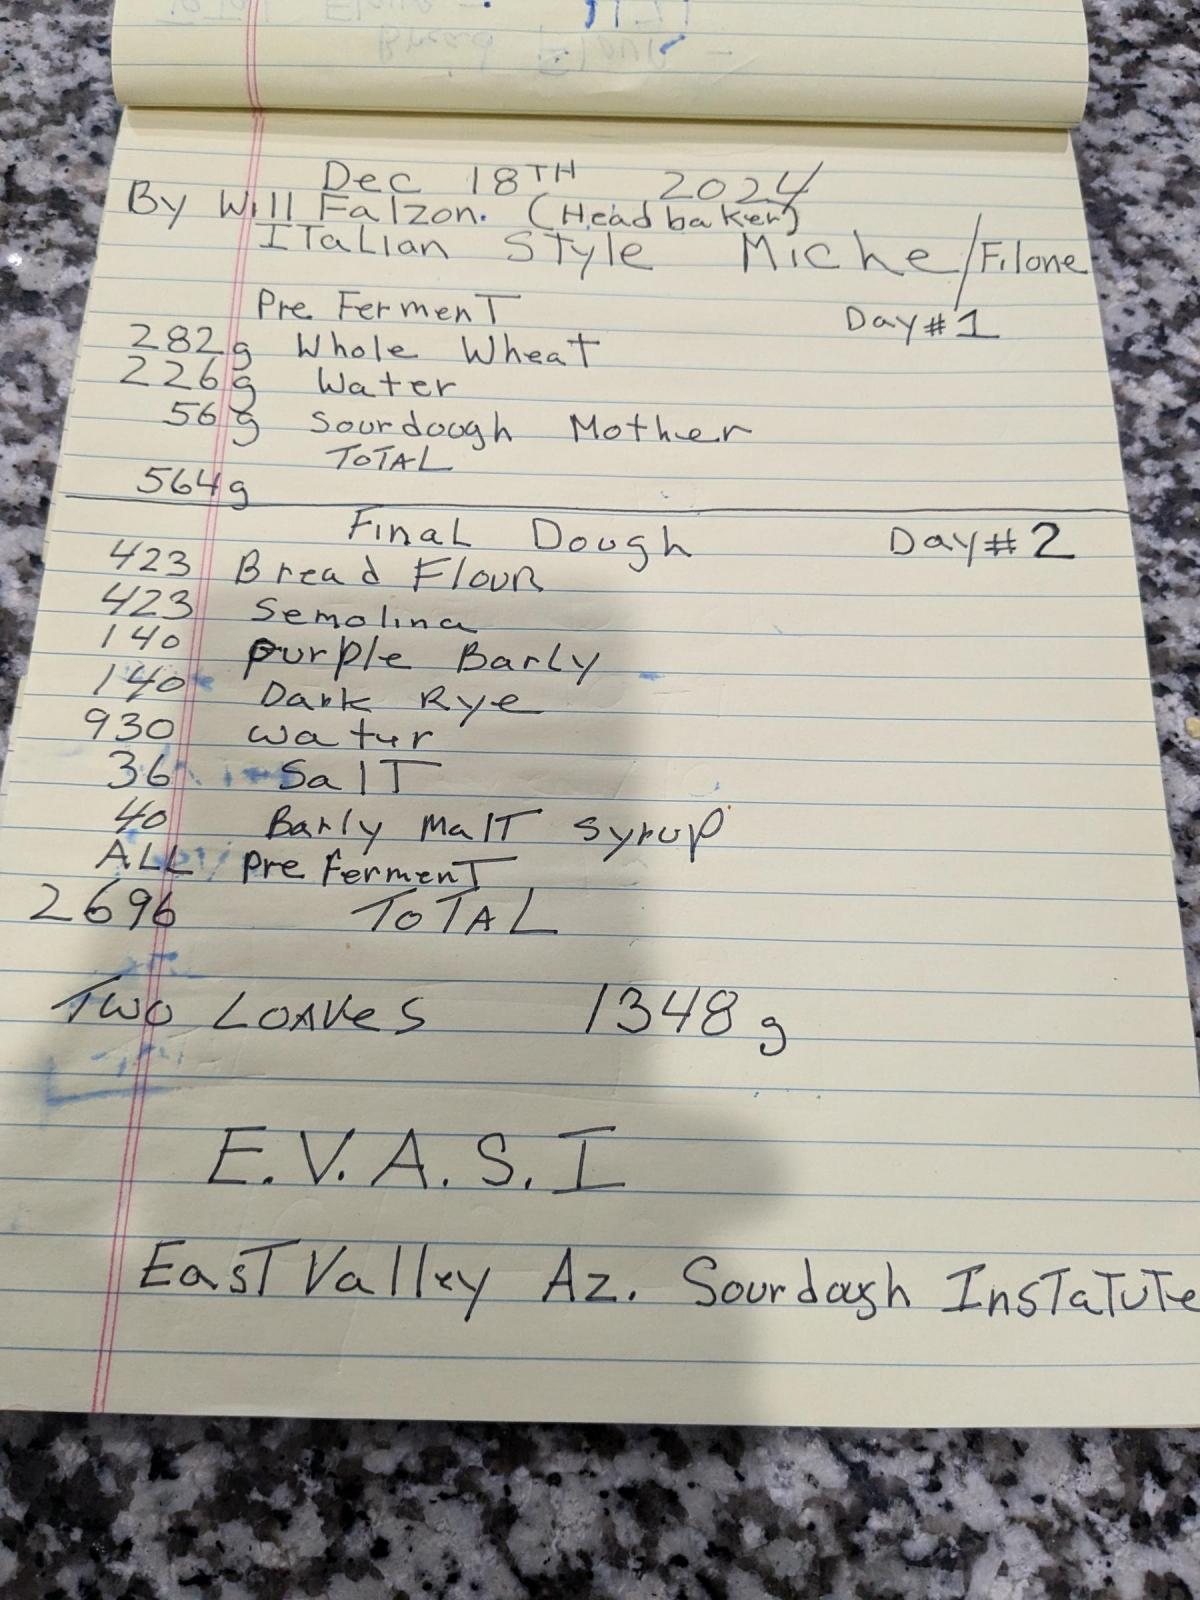 Dec 18TH 2024
By Will Falzon. (Head baker)
ITalian STyle Miche/Filone
Pre FermenT Day#1
282g Whole Wheat
226g Water
56g Sourdough Mother
TOTAL
564g
Final Dough Day#2
423 Bread Flour
423 Semolina
140 purple Barly
140 Dark Rye
930 watur
36 SalT
40 Barly MalT syrup
ALL pre fermenT
2696 ToTAL
Two LOAVeS 1348g
E.V.A.S.I
EasT Valley Az. Sourdough InsTaTuTe